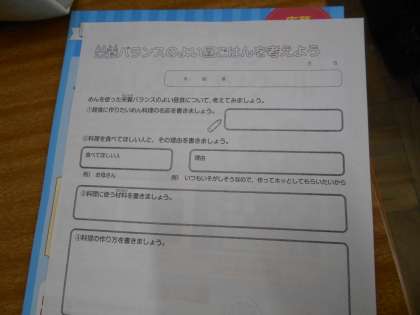 栄養バランスのよい昼ごはんを考えよう
月 日
年 組 番
めんを使った栄養バランスのよい昼食について、考えてみましょう。
①昼食に作りたいめん料理の名前を書きましょう。
②料理を食べてほしい人と、その理由を書きましょう。
食べてほしい人
理由
例）お母さん
例）いつもいそがしそうなので、作ってホッとしてもらいたいから
③料理に使う材料を書きましょう。
④料理の作り方を書きましょう。